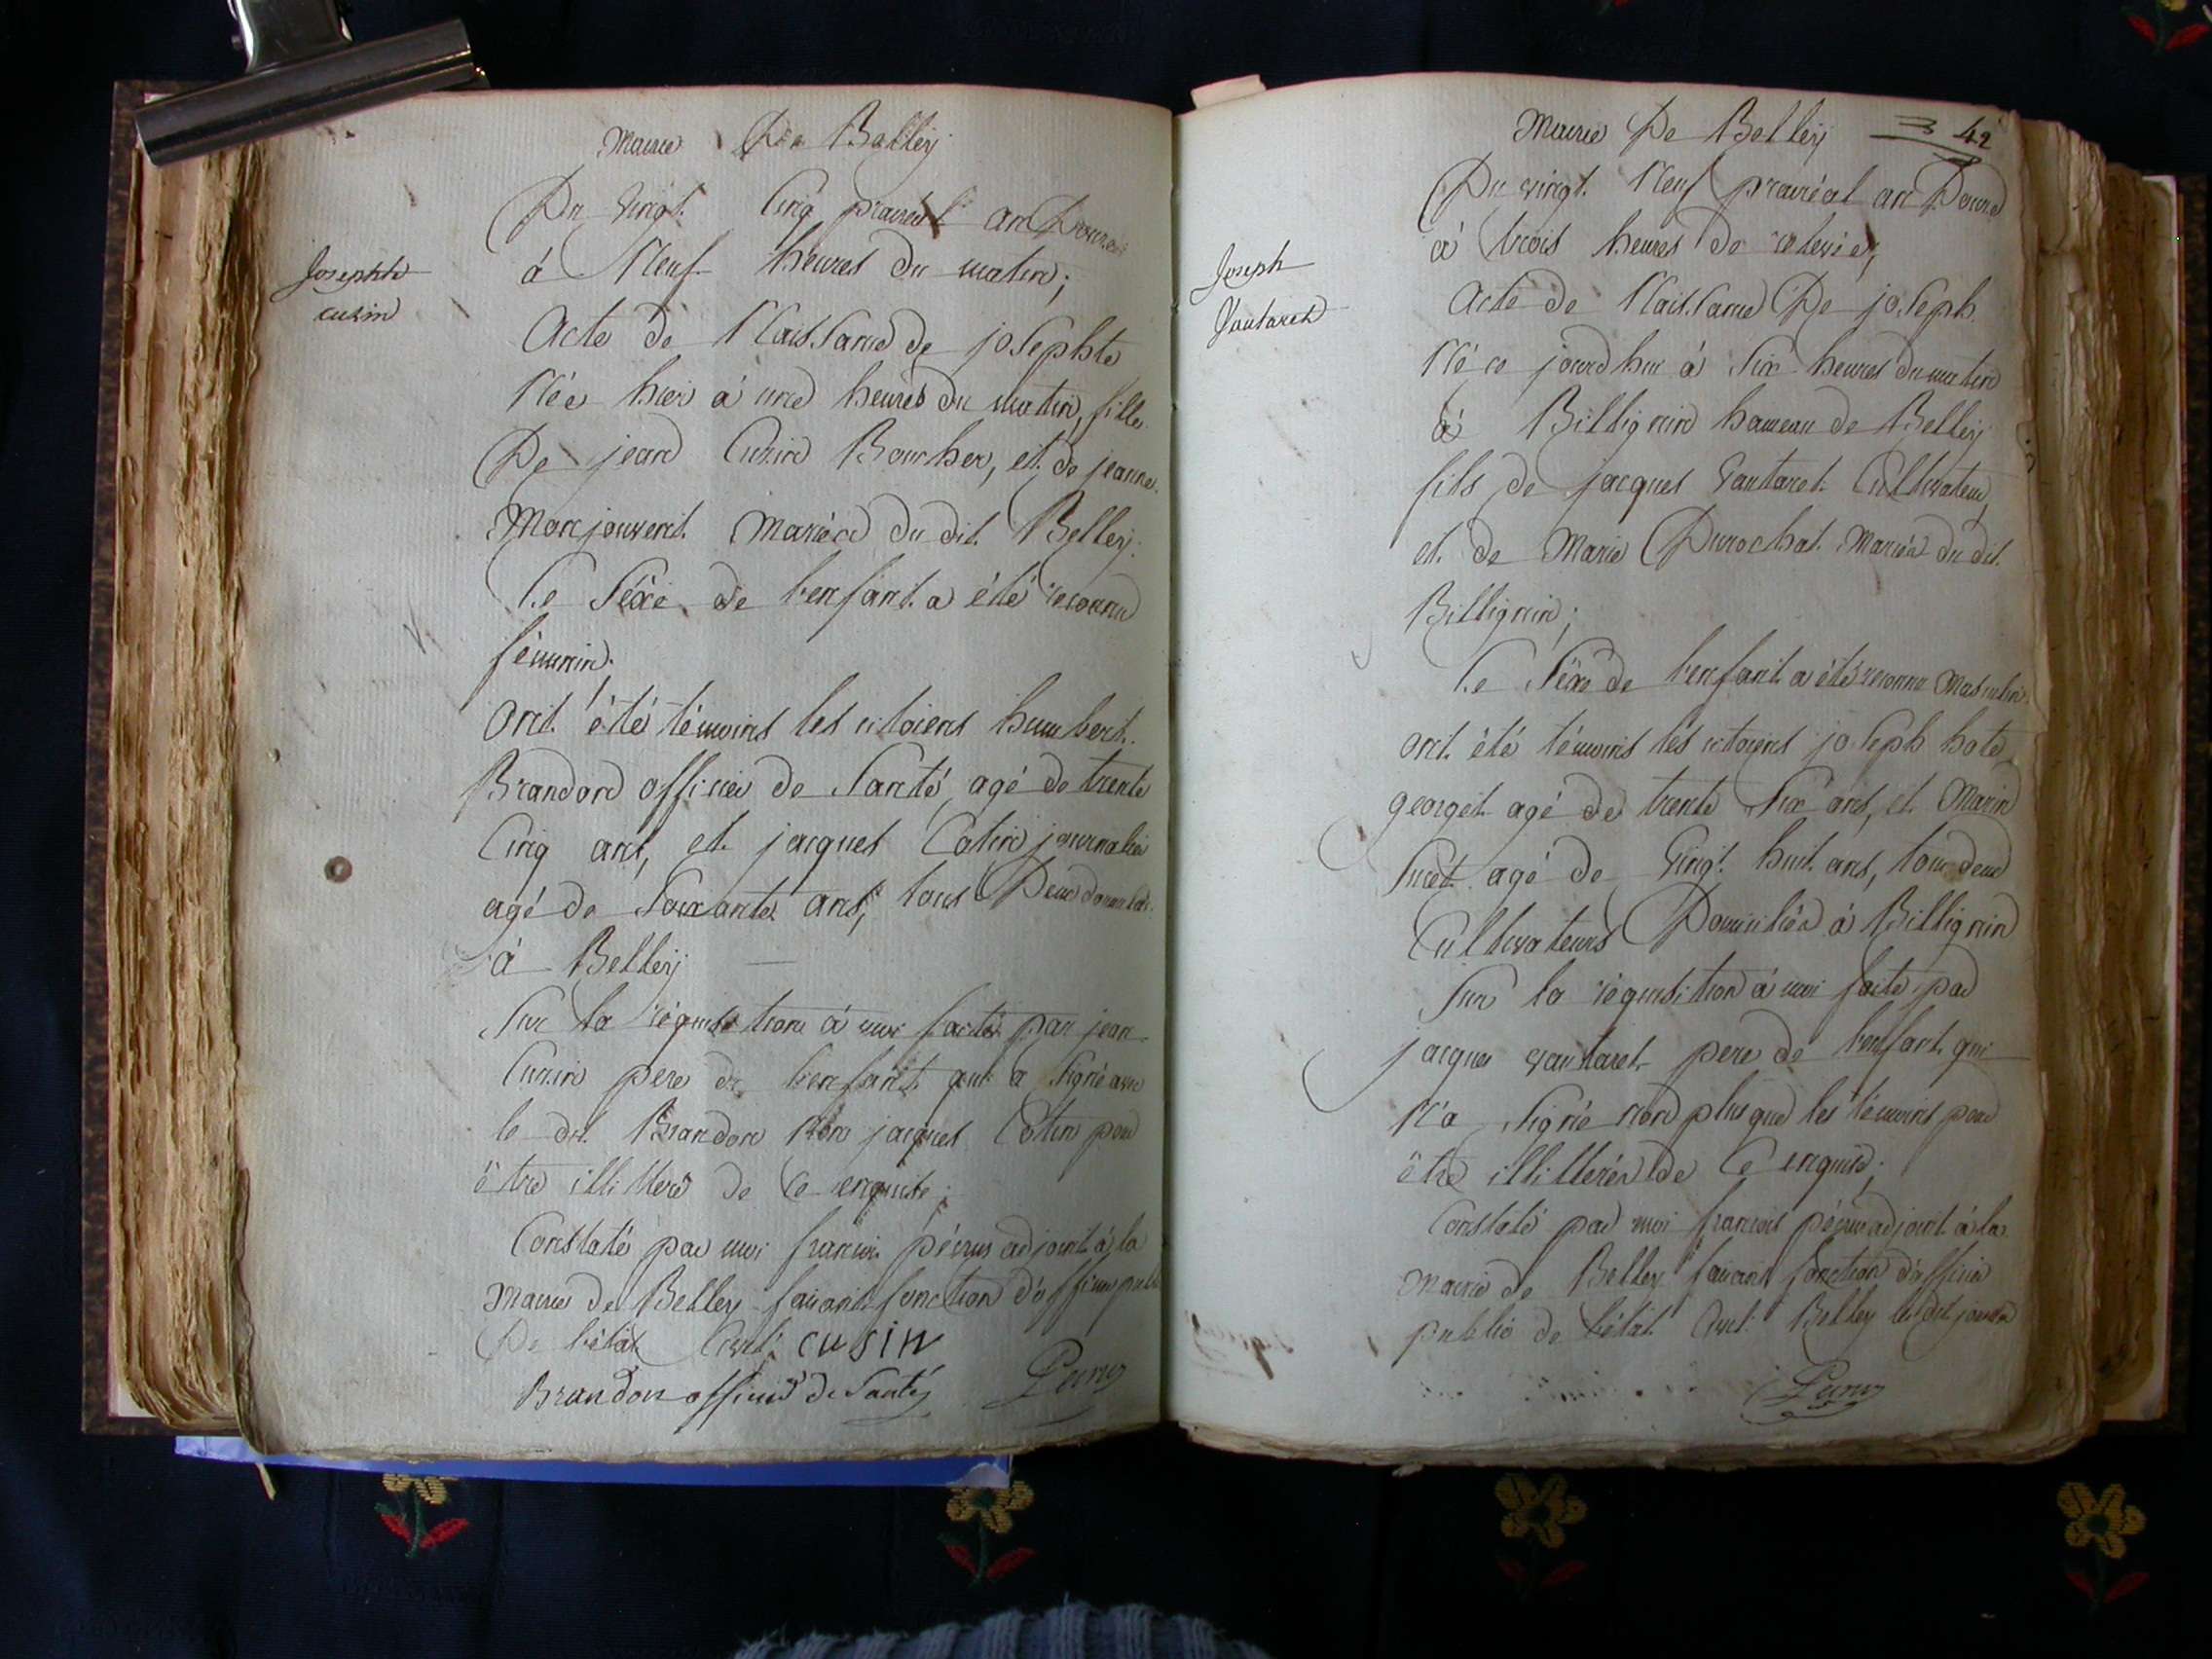 Mairie De Belley
Du Vingt Cinq prairial an Douze
à Neuf heures du matin;
Josephte
cusin
Acte de Naissance de josephte
Née hier à une heures du matin, fille
De jean Cusin Boucher, et de jeanne
Monjouvent Mariés du dit Belley.
Le Séxe de l'enfant a été reconnu
féminin.
Ont été témoins les citoiens humbert
Brandon officier de Santé, agé de trente
Cinq ans, et jacques Cotin journalier
agé de Soixante ans, tous Deux domiciliés
à Belley
Sur la réquisition à moi faite par jean
Cusin pere de l'enfant qui a Signé avec
le dit Brandon Non jacques Cotin pour
être illitteré de Ce enquis;
Constaté par moi francois pécrus adjoint à la
Mairie de Belley faisant fonction d'officier public
De l'état Civil. cusin
Brandon officier de Santé
Mairie De Belley 42
Du vingt Neuf prairéal an Douze
à trois heures de relevée,
Joseph
Vautaret
Acte de Naissance De joseph
Né ce jourdhui à Six heures du matin
à Billignin hameau de Belley
fils de jacques Vautaret Cultivateur,
et de Marie Durochat Mariés du dit
Billignin;
Le Séxe de l'enfant a été reconnu Masculin.
Ont été témoins les citoiens joseph hote
georget agé de trente Six ans, et Marin
Sucet agé de Vingt huit ans, tous deux
Cultivateurs Domiciliés à Billignin
Sur la réquisition à moi faite par
jacques vautaret pere de l'enfant qui
N'a Signé non plus que les témoins pour
être illitterés de Ce enquis;
Constaté par moi francois pécrus adjoint à la
Mairie de Belley faisant fonction d'officier
public de l'état Civil Belley les dit jour